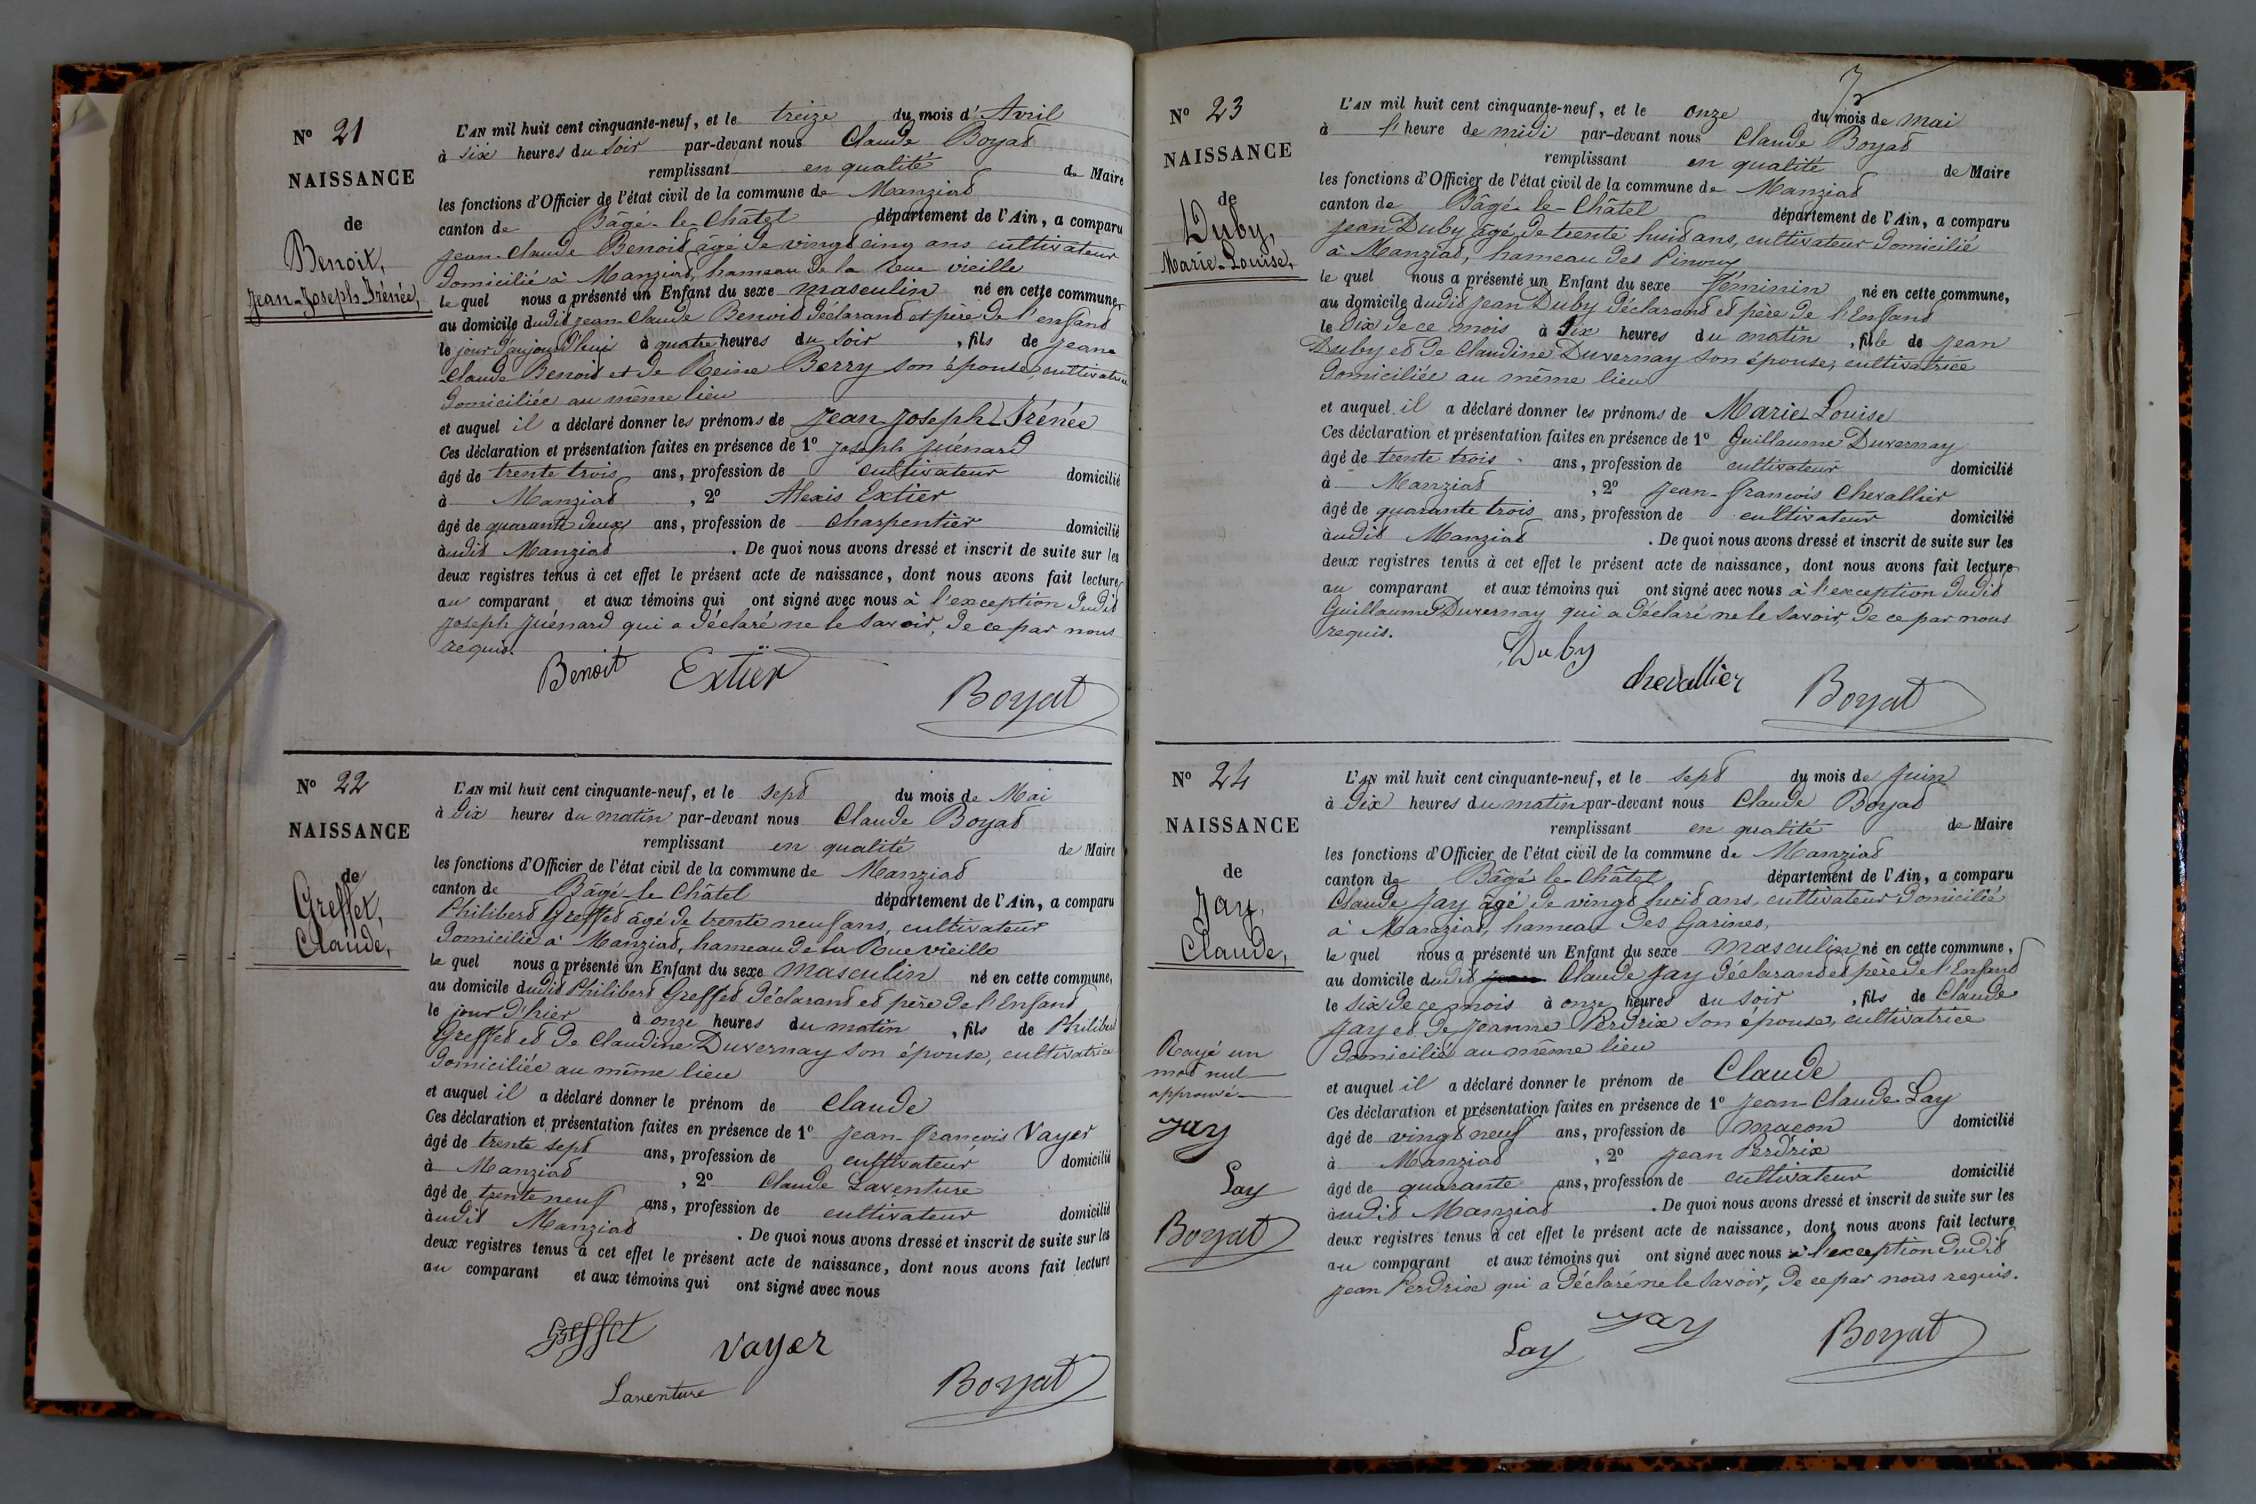 N° 21
NAISSANCE
de
Benoit,
Jean-Joseph-Irénée,
L'AN mil huit cent cinquante-neuf, et le treize du mois d'Avril
à six heures du soir par-devant nous Claude Boyat
remplissant en qualité de Maire
les fonctions d'Officier de l'état civil de la commune de Manziat
canton de Bâgé-le-Châtel département de l'Ain, a comparu
Jean-Claude Benoit âgé de vingt cinq ans cultivateur
domicilié à Manziat, hameau de la Rue vieille
le quel nous a présenté un Enfant du sexe masculin né en cette commune,
au domicile dudit Jean-Claude Benoit déclarant et père de l'enfant
le jour d'aujourd'hui à quatre heures du soir, fils de Jean-
Claude Benoit et de Reine Berry son épouse, cultivatrice
domiciliée au même lieu
et auquel il a déclaré donner les prénoms de Jean-Joseph-Irénée
Ces déclaration et présentation faites en présence de 1° Joseph Guénard
âgé de trente trois ans, profession de cultivateur domicilié
à Manziat, 2° Alexis Extier
âgé de quarante deux ans, profession de charpentier domicilié
audit Manziat. De quoi nous avons dressé et inscrit de suite sur les
deux registres tenus à cet effet le présent acte de naissance, dont nous avons fait lecture
au comparant et aux témoins qui ont signé avec nous à l'exception dudit
Joseph Guénard qui a déclaré ne le savoir, de ce par nous
requis.
Benoit Extier
Boyat
N° 22
NAISSANCE
de
Greffet,
Claude,
L'AN mil huit cent cinquante-neuf, et le sept du mois de Mai
à dix heures du matin par-devant nous Claude Boyat
remplissant en qualité de Maire
les fonctions d'Officier de l'état civil de la commune de Manziat
canton de Bâgé-le-Châtel département de l'Ain, a comparu
Philibert Greffet âgé de trente neuf ans, cultivateur
domicilié à Manziat, hameau de la Rue vieille
le quel nous a présenté un Enfant du sexe masculin né en cette commune,
au domicile dudit Philibert Greffet déclarant et père de l'Enfant
le jour d'hier à onze heures du matin, fils de Philibert
Greffet et de Claudine Duvernay son épouse, cultivatrice
domiciliée au même lieu
et auquel il a déclaré donner le prénom de Claude
Ces déclaration et présentation faites en présence de 1° Jean-François Vayer
âgé de trente sept ans, profession de cultivateur domicilié
à Manziat, 2° Claude Laventure
âgé de trente neuf ans, profession de cultivateur domicilié
audit Manziat. De quoi nous avons dressé et inscrit de suite sur les
deux registres tenus à cet effet le présent acte de naissance, dont nous avons fait lecture
au comparant et aux témoins qui ont signé avec nous
Greffet Vayer
Laventure Boyat
N° 23
NAISSANCE
de
Duby,
Marie-Louise,
L'AN mil huit cent cinquante-neuf, et le onze du mois de mai
à l'heure de midi par-devant nous Claude Boyat
remplissant en qualité de Maire
les fonctions d'Officier de l'état civil de la commune de Manziat
canton de Bâgé-le-Châtel département de l'Ain, a comparu
Jean Duby âgé de trente huit ans, cultivateur domicilié
à Manziat, hameau des Pinoux
le quel nous a présenté un Enfant du sexe féminin né en cette commune,
au domicile dudit Jean Duby déclarant et père de l'Enfant
le dix de ce mois à six heures du matin, fille de Jean
Duby et de Claudine Duvernay son épouse, cultivatrice
domiciliée au même lieu
et auquel il a déclaré donner les prénoms de Marie-Louise
Ces déclaration et présentation faites en présence de 1° Guillaume Duvernay
âgé de trente trois ans, profession de cultivateur domicilié
à Manziat, 2° Jean-François Chevallier
âgé de quarante trois ans, profession de cultivateur domicilié
audit Manziat. De quoi nous avons dressé et inscrit de suite sur les
deux registres tenus à cet effet le présent acte de naissance, dont nous avons fait lecture
au comparant et aux témoins qui ont signé avec nous à l'exception dudit
Guillaume Duvernay qui a déclaré ne le savoir, de ce par nous
requis.
Duby
chevallier Boyat
N° 24
NAISSANCE
de
Jay,
Claude,
L'AN mil huit cent cinquante-neuf, et le sept du mois de Juin
à dix heures du matin par-devant nous Claude Boyat
remplissant en qualité de Maire
les fonctions d'Officier de l'état civil de la commune de Manziat
canton de Bâgé-le-Châtel département de l'Ain, a comparu
Claude Jay âgé de vingt huit ans, cultivateur domicilié
à Manziat, hameau des Garines,
le quel nous a présenté un Enfant du sexe masculin né en cette commune,
au domicile dudit Jean Claude Jay déclarant et père de l'Enfant
le six de ce mois à onze heures du soir, fils de Claude
Jay et de Jeanne Perdrix son épouse, cultivatrice
domiciliée au même lieu
et auquel il a déclaré donner le prénom de Claude
Ces déclaration et présentation faites en présence de 1° Jean-Claude Lay
âgé de vingt neuf ans, profession de maçon domicilié
à Manziat, 2° Jean Perdrix
âgé de quarante ans, profession de cultivateur domicilié
audit Manziat. De quoi nous avons dressé et inscrit de suite sur les
deux registres tenus à cet effet le présent acte de naissance, dont nous avons fait lecture
au comparant et aux témoins qui ont signé avec nous à l'exception dudit
Jean Perdrix qui a déclaré ne le savoir, de ce par nous requis.
Rayé un
mot nul
approuvé
Jay
Lay
Boyat
Lay Jay Boyat